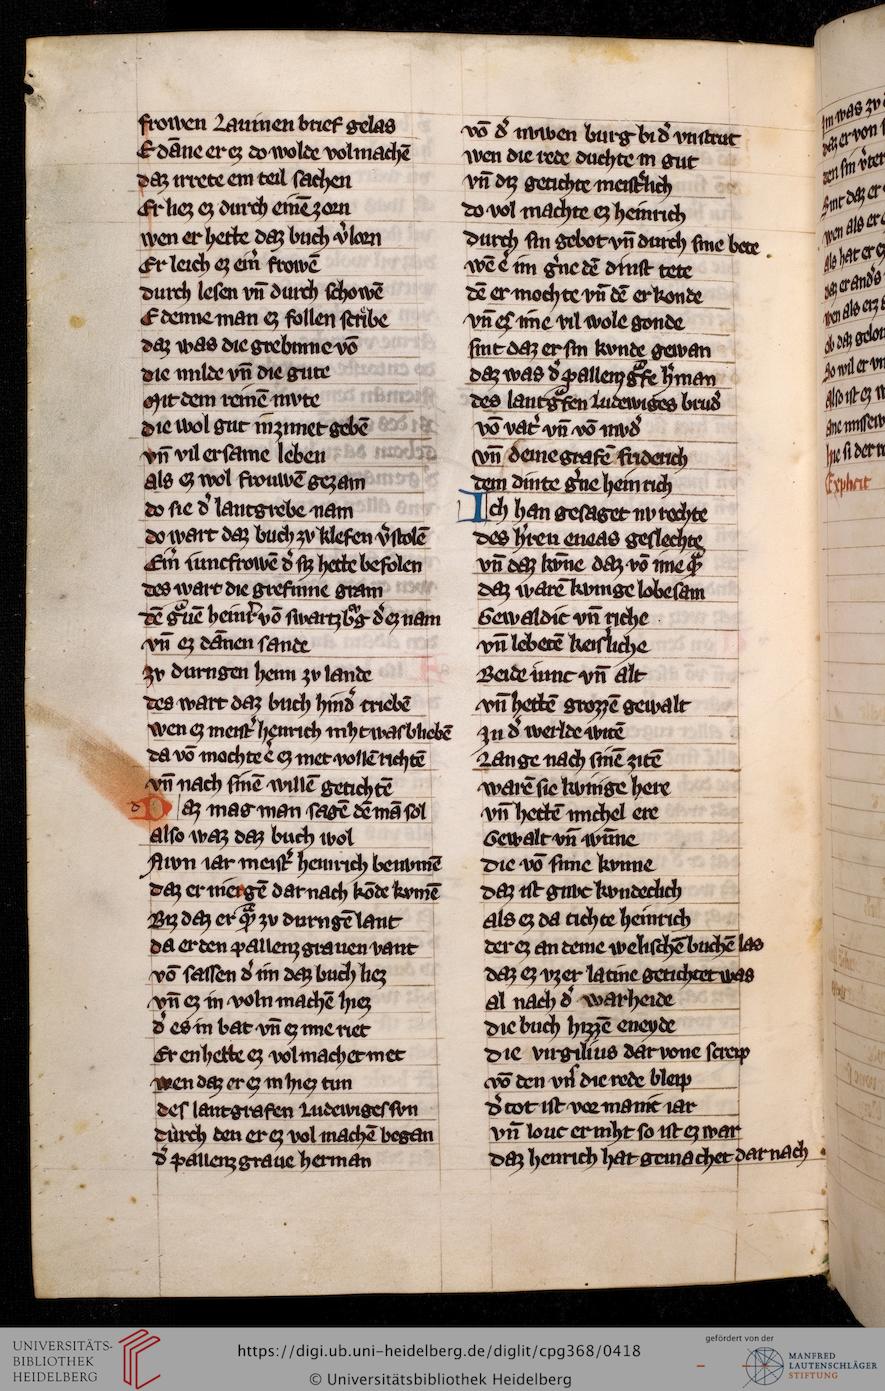 frowen Lauinen brief gelas
E dāne er ez do wolde volmachē
daz irrete ein teil sachen
Er liez ez durch einē zorn
wen er hette daz buch v̓lorn
Er leich ez eim̓ frowē
durch lesen vn̄ durch schowē
E denne man ez follen scribe
daz was die grebinne vō
die milde vn̄ die gute
Mit dem reinē mvte
die wol gut inzimet gebē
vn̄ vil ersame leben
als ez wol frouwē gezam
do sie d̓ lantgrebe nam
do wart daz buch zv klefen v̓stolē
Eim̓ iuncfrowē d̓ siz hette befolen
des wart die grefinne gram
vō swartzb̓g d̓ ez nam
vn̄ ez dānen sande
zv durngen heim zv lande
des wart daz buch hind̓ triebē
wen ez meist̓ henrich niht was bliebē
da vō mochte e̓ ez niet vollērichtē
vn̄ nach sinē willē getichtē
Daz mag man sagē dē mā sol
also waz daz buch wol
Niwn iar meist̓ heinrich
daz er niergē dar nach kōde kvmē
Biz daz er zv durngē lant
da er den pallenzgrauen vant
vō sassen d̓ im daz buch liez
vn̄ ez in voln machē hiez
d̓ es in bat vn̄ ez ime riet
Er en hette ez vol machet niet
wen daz er ez in hiez tun
des lantgrafen Ludewiges svn
durch den er ez vol machē began
d̓ pallenzgraue herman
vō d̓ nvwen burg bi d̓ vnstrut
wen die rede duchte in gut
vn̄ diz getichte meist̓lich
do vol machte ez heinrich
durch sin gebot vn̄ durch sine bete
wē e̓ im g̓ne dē dinst tete
dē er mochte vn̄ dē er konde
vn̄ es ime vil wole gonde
sint daz er sin kvnde gewan
daz was d̓ pallenzg̓fe h̓man
des lantg̓fen Ludewiges brud̓
vō vat̓ vn̄ vō mvd̓
vn̄ deme grafē friderich
dem dinte g̓ne heinrich
Ich han gesaget nv rechte
des h̓ren eneas geslechte
vn̄ daz kvne daz vō ime
daz warē kvnige lobesam
Gewaldic vn̄ riche
vn̄ lebetē keis̓liche
Beide iunc vn̄ alt
vn̄ hettē grozzē gewalt
zu d̓ werlde witē
Lange nach sinē zitē
warē sie kvnige here
vn̄ hettē michel ere
Gewalt vn̄ wūne
die vō sime kvnne
daz ist gnvc kvndeclich
als ez da tichte heinrich
der ez an deme welischē buchē las
daz ez vz er latine getichtet was
al nach d̓ warheide
die buch hizzē eneyde
die virgilius dar vone screip
vō den vns die rede bleip
d̓ tot ist vor manic iar
vn̄ louc er niht so ist ez war
daz henrich hat gemachet dar nach
Explicit
UNIVERSITÄTS-
BIBLIOTHEK
HEIDELBERG
https://digi.ub.uni-heidelberg.de/diglit/cpg368/0418
© Universitätsbibliothek Heidelberg
gefördert von der
MANFRED
LAUTENSCHLÄGER
STIFTUNG